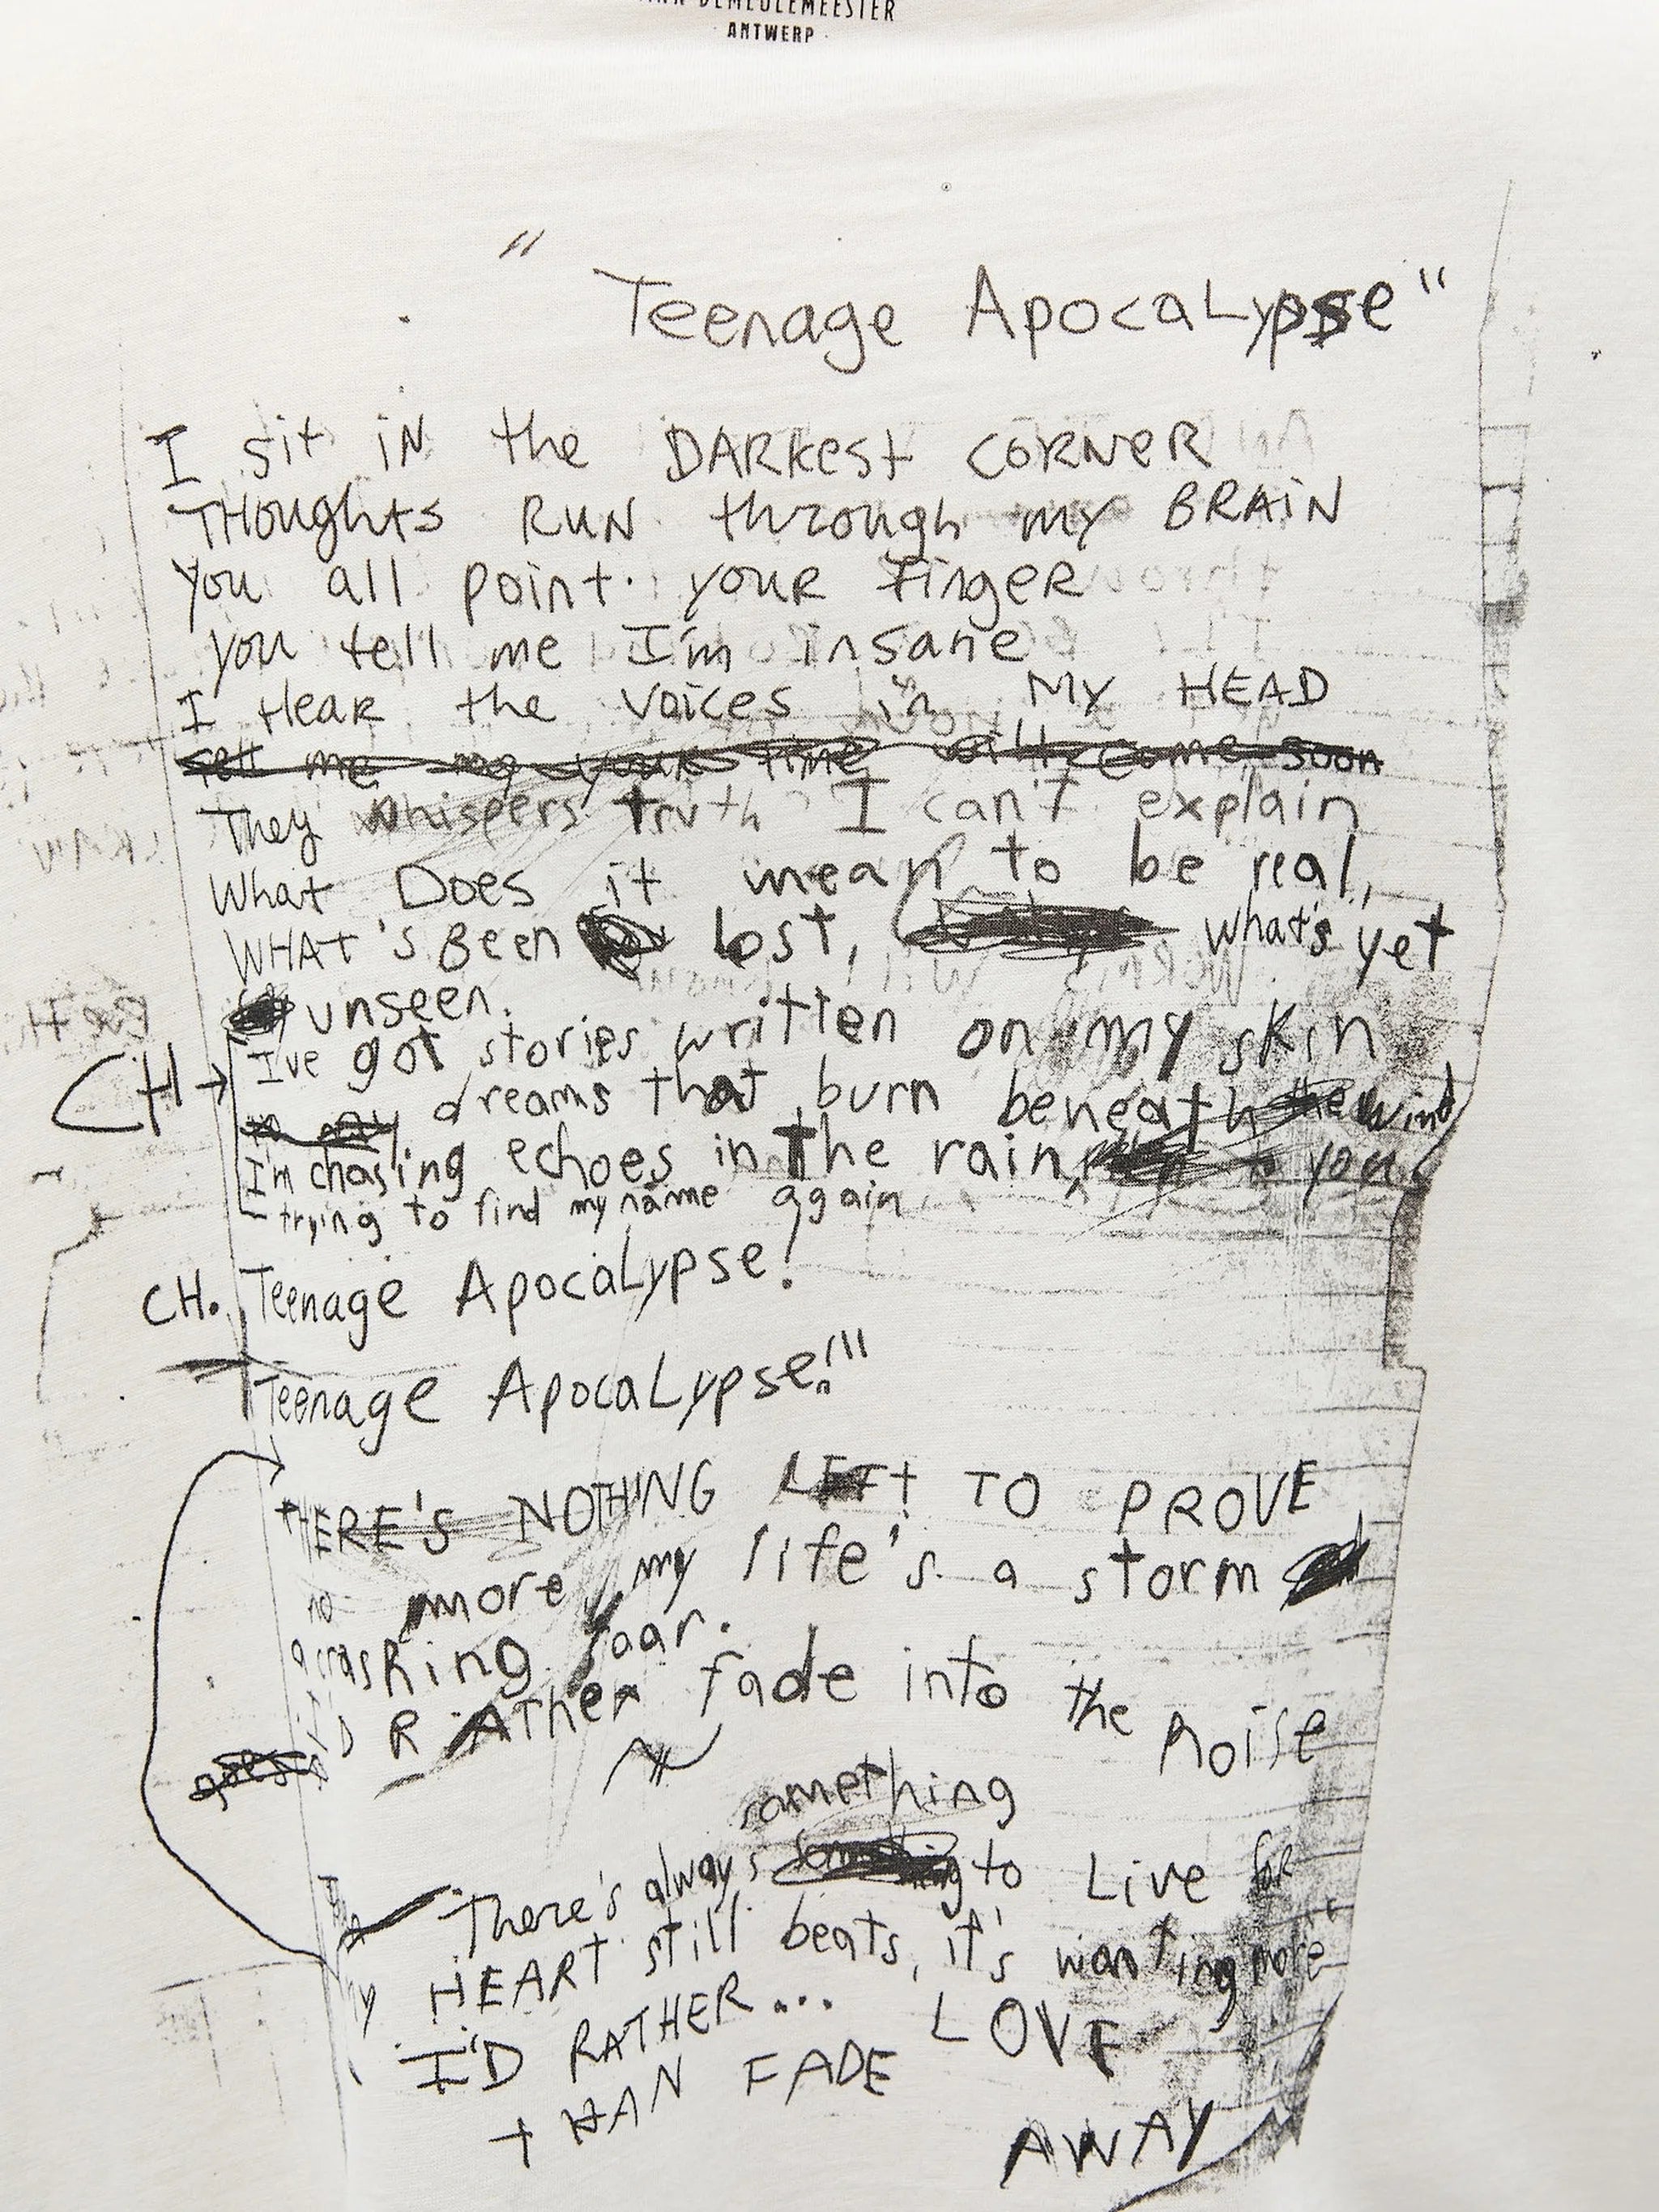 DEMEULEMEESTER
ANTWERP
" Teenage Apocalypse"
I sit iN the DARKest CORNeR
THoughts RUN through my BRAiN
You all point your FingeR
you tell me I'm insane
I HeaR the Voices in MY HEAD
tell me my your time will come soon
They whispers truth I can't explain
What Does it mean to be real,
WHAt's Been lost, what's yet
unseen.
CH → I've got stories written on my skin
in my dreams that burn beneath the wind
I'm chasing echoes in the rain, to you
trying to find my name again
CH. Teenage Apocalypse!
Teenage Apocalypse!"
tHERE'S NOTHING LEFt TO PROVE
no more, my life's a storm
a crashing roar.
I'D RATHeR fade into the noise
something
There's always something to Live foR
my HEART still beats, it's wanting more
I'D RATHER... LOVE
tHAN FADE
AWAY